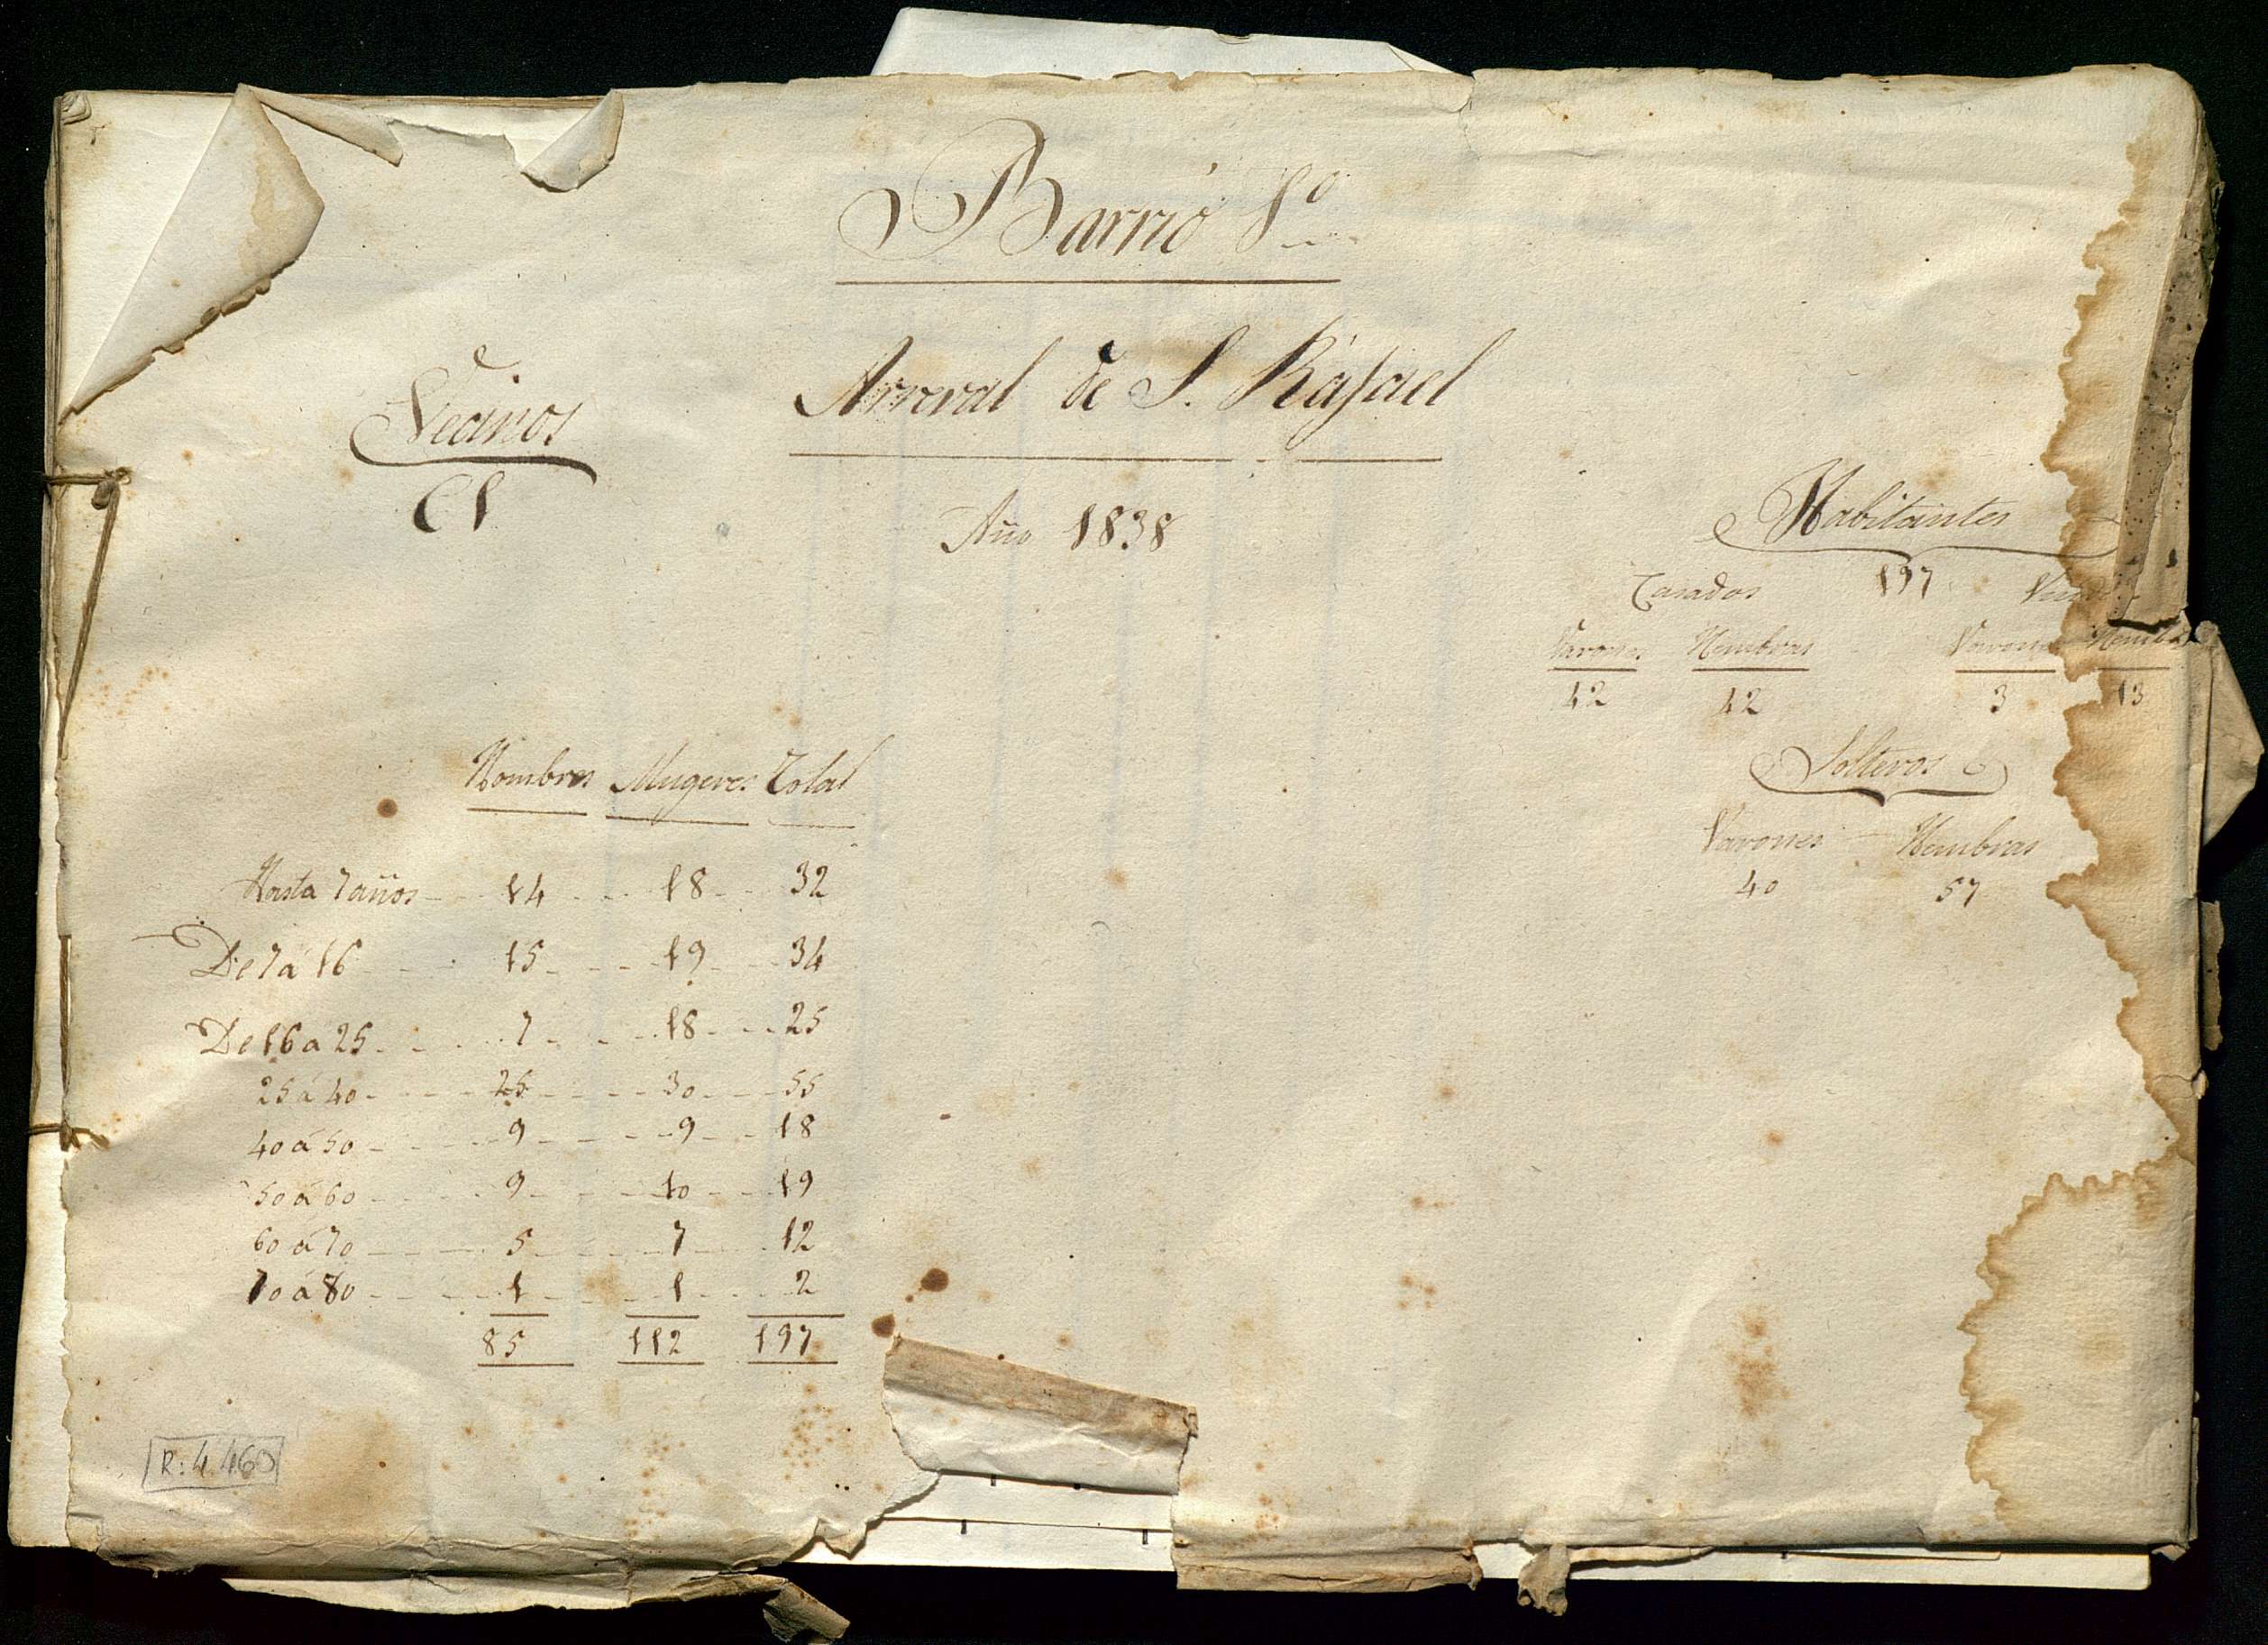 Barrio 1º
Arreval de S. Rafael
Vecinos
Año 1838
Habitantes
197
Casados Viudos
Varones Hembras Varones Hembras
42 42 3 13
Solteros
Varones Hembras
40 57
Hombres Mugeres Total
Hasta 7 años 14 18 32
De 7 á 16 15 19 34
De 16 a 25 7 18 25
25 á 40 25 30 55
40 á 50 9 9 18
50 á 60 9 10 19
60 á 70 5 7 12
70 á 80 1 1 2
85 112 197
R: 4.460